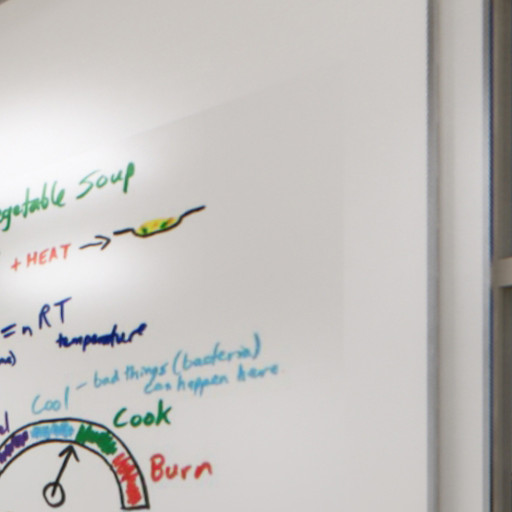 egetable Soup
+ HEAT →
= nRT
temperature
Cool - bad things (bacteria)
can happen here
Cook
Burn